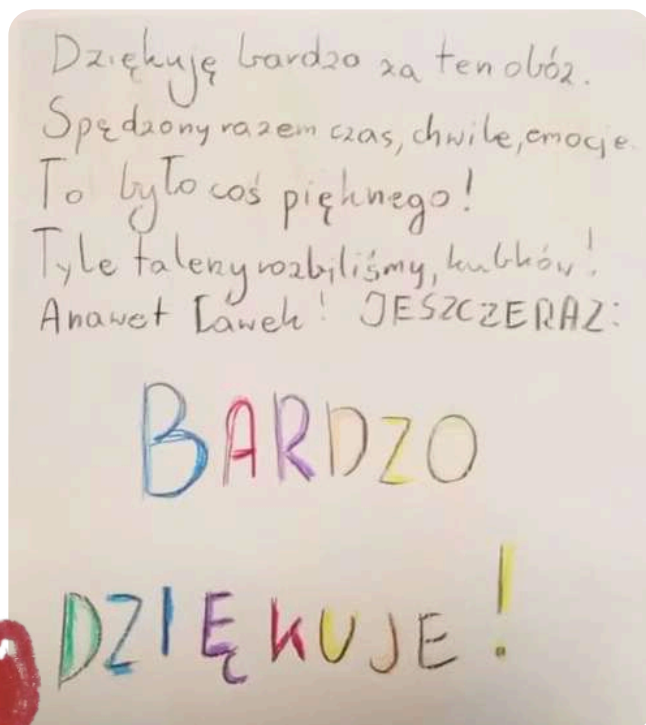 Dziękuję bardzo za ten obóz.
Spędzony razem czas, chwile, emocje.
To było coś pięknego!
Tyle talerzy rozbiliśmy, kubków!
A nawet ławek! JESZCZE RAZ:
BARDZO
DZIĘKUJE!